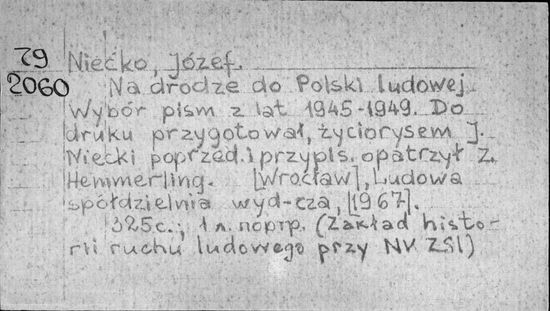 79
2060
Niećko, Józef.
Na drodze do Polski ludowej.
Wybór pism z lat 1945-1949. Do
druku przygotował, życiorysem J.
Niećki poprzed. i przypis. opatrzył Z.
Hemmerling. [Wrocław], Ludowa
spółdzielnia wyd-cza, [1967].
325с.; 1 л. портр. (Zakład histo-
rii ruchu ludowego przy NK ZSL)